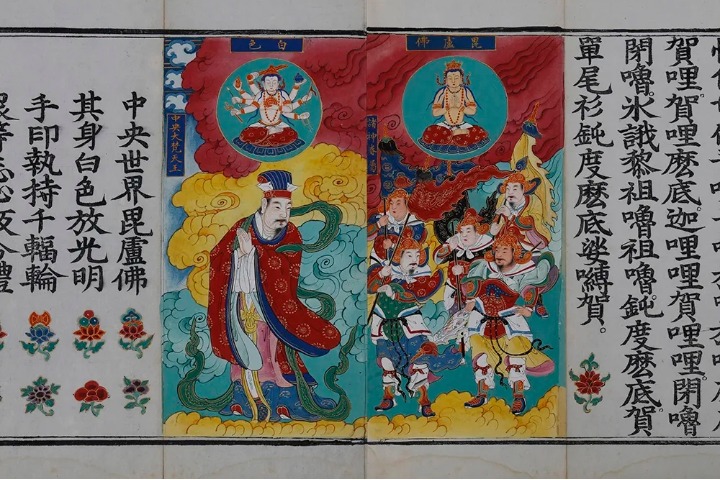 賀哩。賀哩麽底迦哩哩賀哩哩。閉嚕
閉嚕。氷誐黎祖嚕祖嚕。鈍度麽底賀
單尾衫鈍度麽底娑嚩賀。
毘盧佛
白色
中央大梵天王
中央世界毘盧佛
其身白色放光明
手印執持千輻輪